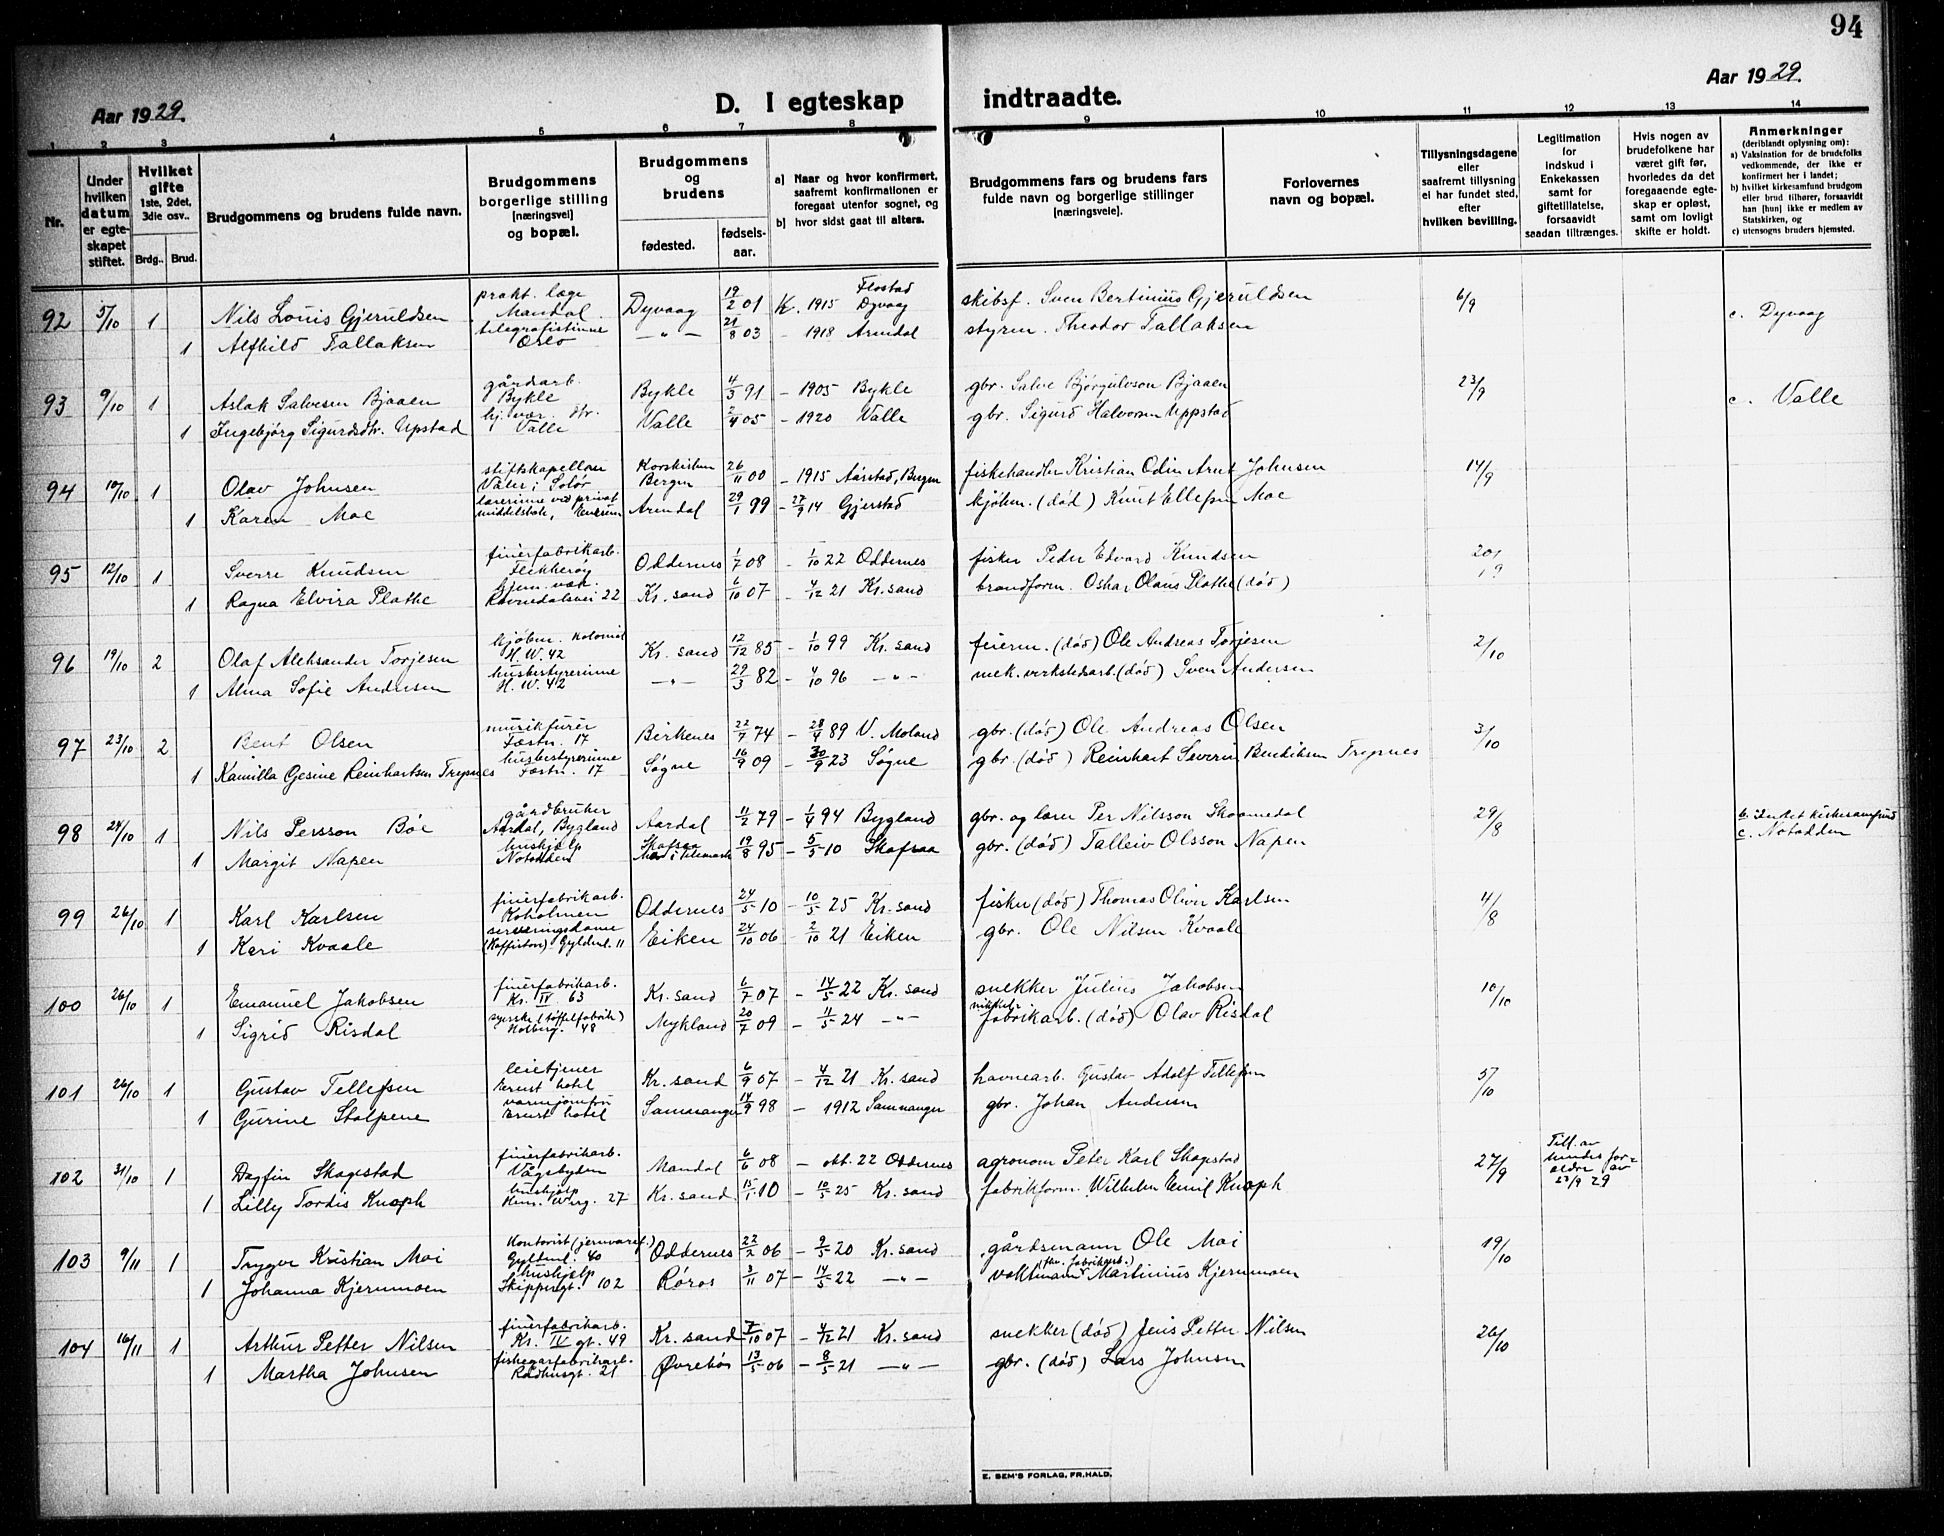 94
Aar 1929.
D. I egteskap indtraadte.
Aar 1929.
1 2 3 4 5 6 7 8 9 10 11 12 13 14
Nr.
Under hvilken datum er egte- skapet stiftet.
Hvilket gifte 1ste, 2det, 3die osv..
Brdg.. Brud.
Brudgommens og brudens fulde navn.
Brudgommens borgerlige stilling (næringsvei) og bopæl.
Brudgommens og brudens
fødested.
fødsels- aar.
a) Naar og hvor konfirmert, saafremt konfirmationen er foregaat utenfor sognet, og
b) hvor sidst gaat til alters.
Brudgommens fars og brudens fars fulde navn og borgerlige stillinger (næringsveie).
Forlovernes navn og bopæl.
Tillysningsdagene eller saafremt tillysning ei har fundet sted, efter hvilken bevilling.
Legitimation for indskud i Enkekassen samt for giftetillatelse, forsaavidt saadan tiltrænges.
Hvis nogen av brudefolkene har været gift før, hvorledes da det foregaaende egte- skap er opløst, samt om lovligt skifte er holdt.
Anmerkninger (deriblandt oplysning om):
a) Vaksination for de brudefolks vedkommende, der ikke er konfirmert her i landet;
b) hvilket kirkesamfund brudgom eller brud tilhører, forsaavidt han [hun] ikke er medlem av Statskirken, og
c) utensogns bruders hjemsted.
92 5/10 1 Nils Louis Gjeruldsen prakt. læge Mandal Dyvaag 19/2 01 K. 1915 Flostad Dyvaag skibsf. Sven Bertinius Gjeruldsen 6/9 c. Dyvaag
1 Alfhild Tallaksen telegrafistinne Oslo —"— 21/8 03 - 1918 Arendal styrm. Theodor Tallaksen
93 9/10 1 Aslak Salvesen Bjaaen gårdarb. Bykle Bykle 4/3 91 - 1905 Bykle gbr. Salve Bjørgulvson Bjaaen 23/9 c. Valle
1 Ingebjørg Sigurdsdtr. Upstad hj. vær. dtr. Valle Valle 2/4 05 - 1920 Valle gbr. Sigurd Halvorsen Uppstad
94 10/10 1 Olav Johnsen stiftskapellan Våler i Solør Korskirken Bergen 26/11 00 - 1915 Aarstad, Bergen fiskehandler Kristian Odin Arnt Johnsen 14/9
1 Karen Moe lærerinne ved privat middelskole, Elverum Arendal 29/1 99 - 27/9 14 Gjerstad kjøbm. (død) Knut Ellefsen Moe
95 12/10 1 Sverre Knudsen finérfabrikarb. Flekkerøy Oddernes 1/7 08 - 1/10 22 Oddernes fisker Peder Edvard Knudsen 20/9
1 Ragna Elvira Plathe hjem. vær. Ravnedalsvei 22 Kr. sand 6/10 07 - 4/12 21 Kr. sand brandform. Oskar Olaus Plathe (død)
96 19/10 2 Olaf Aleksander Torjesen kjøbm. kolonial H. W. 42 Kr. sand 12/12 85 - 1/10 99 Kr. sand feierm. (død) Ole Andreas Torjesen 2/10
1 Alma Sofie Andersen husbestyrerinne H. W. 42 —"— 29/3 82 - 4/10 96 —"— mek. verkstedsarb. (død) Sven Andersen
97 23/10 2 Bent Olsen musikfurér Fæstn. 17 Birkenes 22/7 74 - 28/4 89 V. Moland gbr. (død) Ole Andreas Olsen 3/10
1 Kamilla Gesine Reinhartsen Trysnes husbestyrerinne Fæstn. 17 Søgne 16/9 09 - 30/9 23 Søgne gbr. (død) Reinhart Severin Bendiksen Trysnes
98 24/10 1 Nils Persson Böe gårdbruker Aardal, Bygland Aardal 11/2 79 - 1/4 94 Bygland gbr. og lærer Per Nilsson Skomedal 29/8 b. Intet kirkesamfund c. Notodden
1 Margit Napen hushjelp Notodden Skafsaa Mo i Telemark 19/8 95 - 5/5 10 Skafsaa gbr. (død) Talleiv Olsson Napen
99 26/10 1 Karl Karlsen finérfabrikarb. Koholmen Oddernes 24/5 10 - 10/5 25 Kr. sand fisker (død) Thomas Oliver Karlsen 4/8
1 Kari Kvaale serveringsdame (Kaffistova) Gyldenl. 11 Eiken 24/10 06 - 2/10 21 Eiken gbr. Ole Nilsen Kvaale
100 26/10 1 Emanuel Jakobsen finérfabrikarb. Kr. IV 63 Kr. sand 6/7 07 - 14/5 22 Kr. sand snekker Julius Jakobsen 10/10
1 Sigrid Risdal syerske (tøffelfabrik) Holberg. 48 Mykland 20/7 09 - 11/5 24 —"— nikkel- fabrikarb. (død) Olav Risdal
101 26/10 1 Gustav Tellefsen leietjener Ernst hotel Kr. sand 6/9 07 - 4/12 21 Kr. sand havnearb. Gustav Adolf Tellefsen 5/10
1 Gurine Stolpene varmjomfru Ernst hotel Samnanger 14/9 98 - 1912 Samnanger gbr. Johan Andersen
102 31/10 1 Dagfin Skagestad finérfabrikarb. Vågsbygden Mandal 6/6 08 - okt. 22 Oddernes agronom Peter Karl Skagestad 27/9 Till. av hendes for- eldre av 23/9 29
1 Lilly Tordis Knoph hushjelp Henr. Werg. 27 Kr. sand 15/1 10 - 10/5 25 Kr. sand fabrikform. Wilhelm Emil Knoph
103 9/11 1 Trygve Kristian Moi Kontorist (jernvaref.) Gyldenl. 40 Oddernes 22/2 06 - 9/5 20 Kr. sand gårdsmann Ole Moi 19/10
1 Johanna Kjernmoen hushjelp Skippergt. 102 Røros 3/11 07 - 14/5 22 —"— vaktmann (fhv. fabrikarb.) Martinius Kjernmoen
104 16/11 1 Arthur Petter Nilsen finérfabrikarb. Kr. IV gt. 49 Kr. sand 7/10 07 - 4/12 21 Kr. sand snekker (død) Jens Petter Nilsen 26/10
1 Martha Johnsen fiskegarnfabrikarb. Rådhusgt. 21 Øvrebø 13/5 06 - 8/5 21 —"— gbr. (død) Lars Johnsen
E. SEM'S FORLAG, FR.HALD.